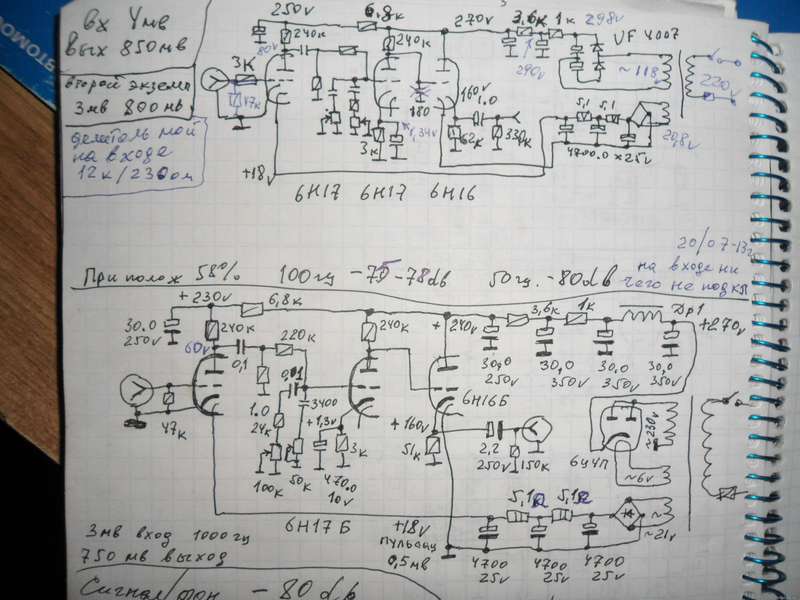 вх 4мв
вых 850мв
второй экземп
3мв 800мв
делитель мой
на входе
12к/230ом
250v
6,8к
270v
3,6к 1к
298v
VF 4007
240к
240к
80v
3к
47к
290v
~118
220v
180
160v
1.0
1,34v
3к
62к
330к
5,1 5,1
4700.0 x 25v
20,8v
+18v
6Н17 6Н17 6Н16
20/07-13г
При полож 58% 100гц -75-78db 50гц. -80db
на входе ни
чего не подкл
+230v
6,8к
3,6к
1к
Др1
30.0
250v
240к
240к
+240v
+270v
60v
0,1
220к
30,0
250v
30,0
350v
30.0
350v
30.0
350v
0,01
3400
6Н16Б
47к
1.0
24к
+1,3v
3к
+160v
51к
2,2
250v
150к
6Ц4П
~230v
~6v
100к
50к
470.0
10v
5,1Ω 5,1Ω
~21v
6Н17Б
+18v
пульсац
0,5мв
4700
25v
4700
25v
4700
25v
3мв вход 1000гц
750мв выход
Сигнал/фон -80db